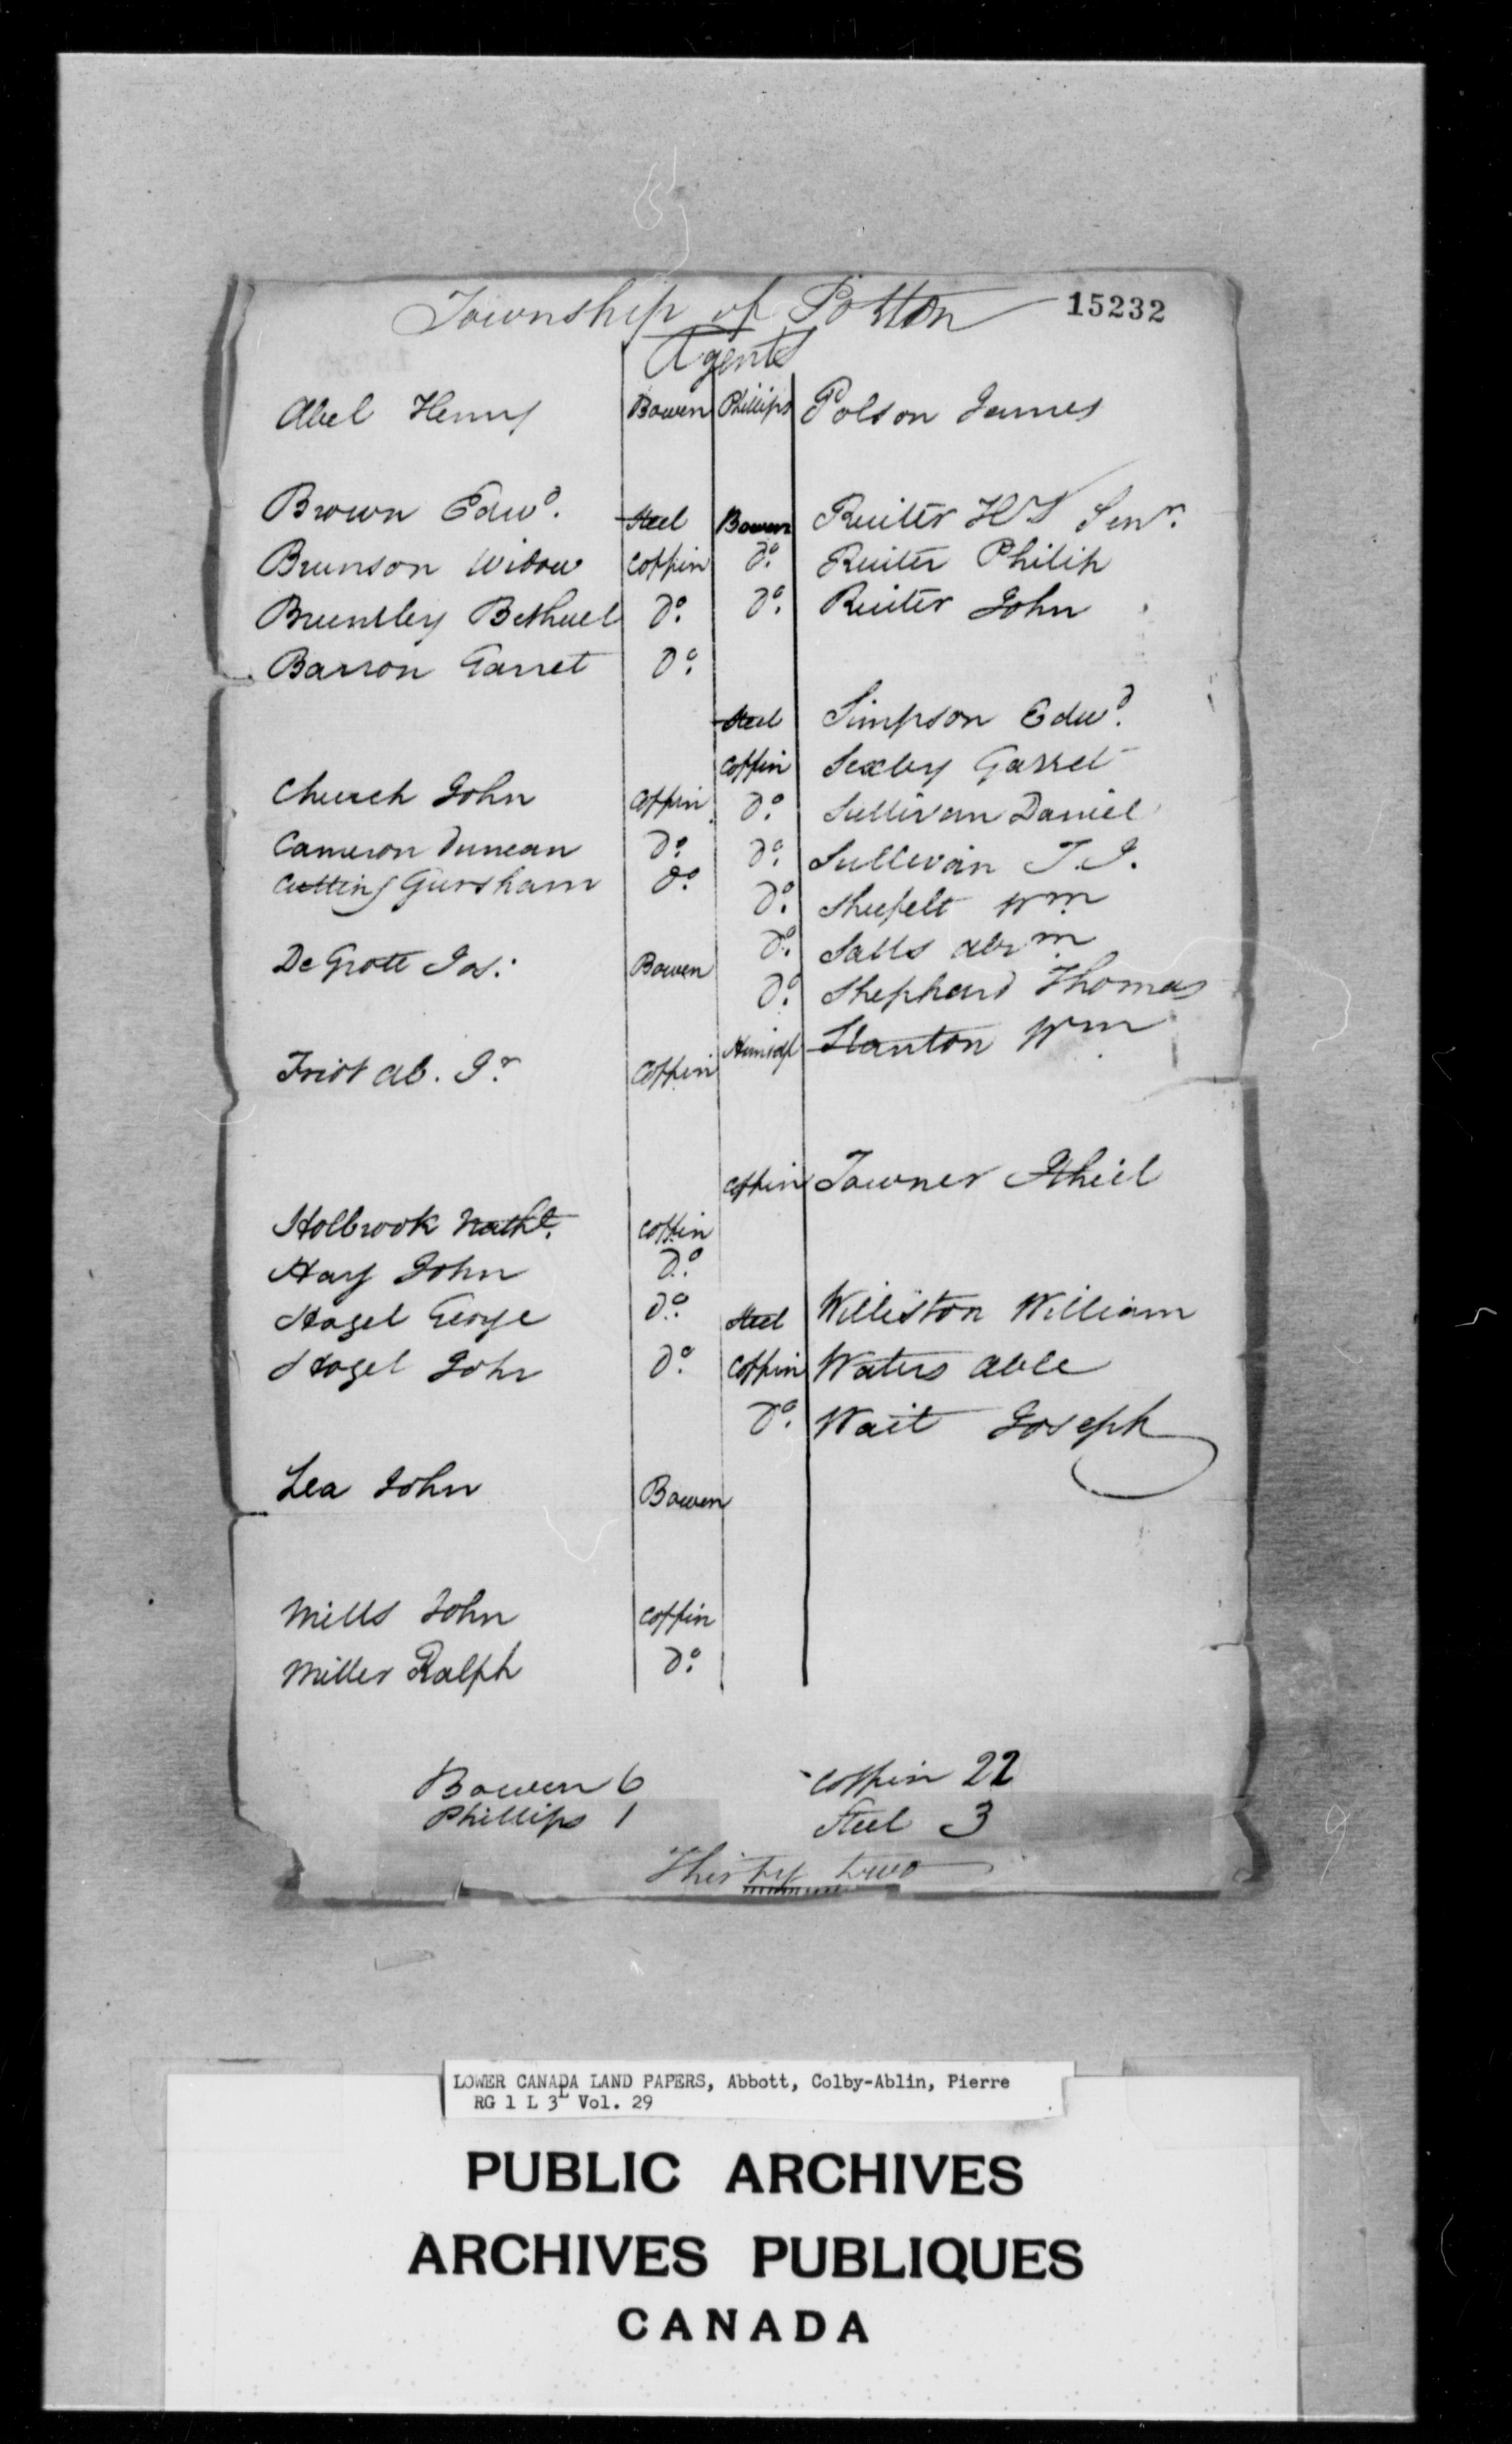 Township of Potton 15232
Agents
Abel Henry Bowen Phillips Polson James
Brown Edwd. Steel Bowen Ruiter H Senr.
Brunson Widow Coffin Do. Ruiter Philip
Bruntley Bethuel Do. Do. Ruiter John
Barron Garret Do.
Steel Simpson Edwd.
Coffin Saxby Garret
Church John Coffin Do. Sullivan Daniel
Cameron Duncan Do. Do. Sullivan J. J.
Cutting Gursham Do. Do. Shufelt Wm
Do. Salls Abrm
De Grott Jas: Bowen Do. Shephard Thomas
Himself Stanton Wm
Friot Ab. Jr Coffin
Coffin Towner Ithiel
Holbrook Nathl. Coffin
Hay John Do.
Hogel George Do. Steel Williston William
Hogel John Do. Coffin Waters Able
Do. Wait Joseph
Lea John Bowen
Mills John Coffin
Miller Ralph Do.
Bowen 6 Coffin 22
Phillips 1 Steel 3
Thirty two
LOWER CANADA LAND PAPERS, Abbott, Colby-Ablin, Pierre
RG 1 L 3L Vol. 29
PUBLIC ARCHIVES
ARCHIVES PUBLIQUES
CANADA